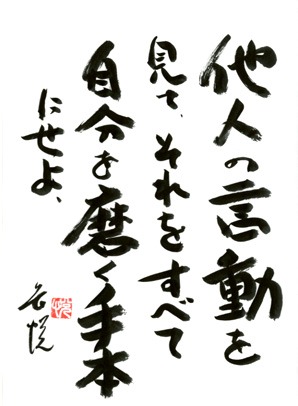 他人の言動を
見て、それをすべて
自分を磨く手本
にせよ、